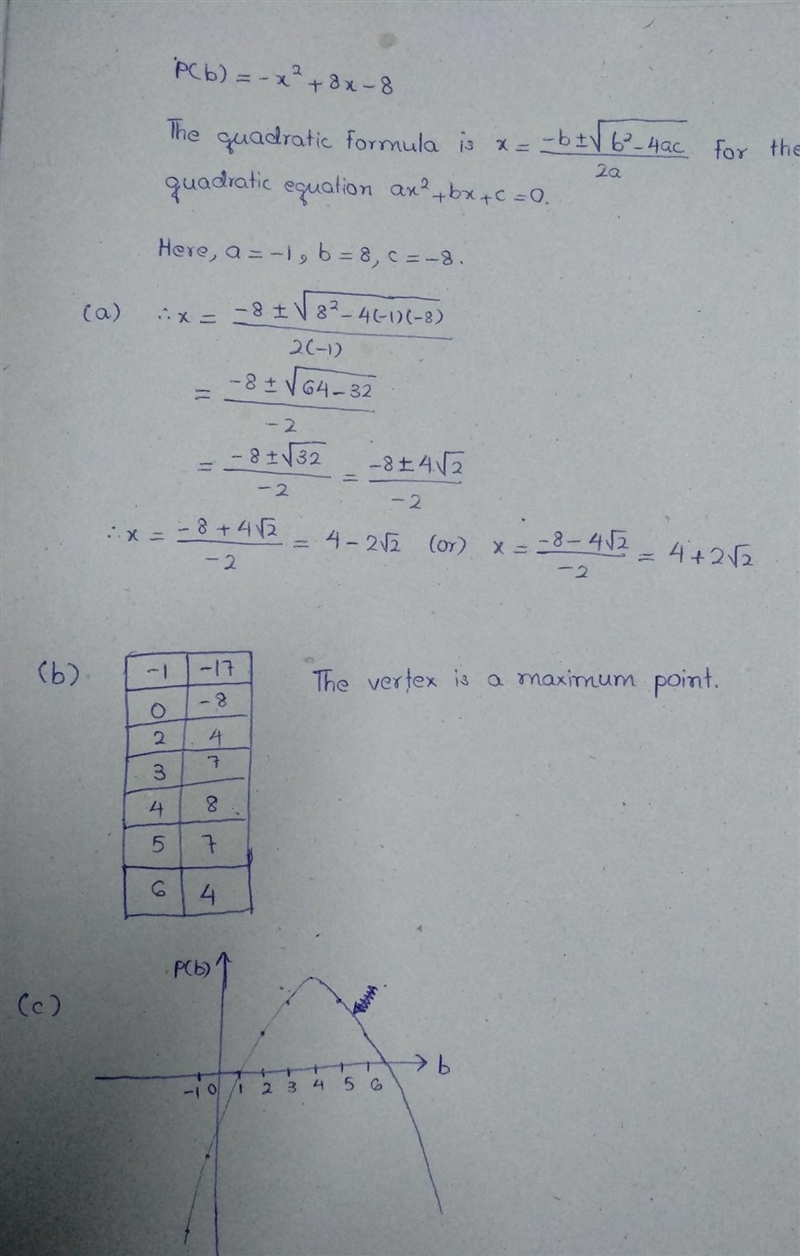 P(b) = -x² + 8x - 8
The quadratic formula is x = (-b ± √(b² - 4ac)) / 2a for the
quadratic equation ax² + bx + c = 0.
Here, a = -1, b = 8, c = -8.
(a) ∴ x = (-8 ± √(8² - 4(-1)(-8))) / 2(-1)
= (-8 ± √(64 - 32)) / -2
= (-8 ± √32) / -2 = (-8 ± 4√2) / -2
∴ x = (-8 + 4√2) / -2 = 4 - 2√2 (or) x = (-8 - 4√2) / -2 = 4 + 2√2
(b) The vertex is a maximum point.
-1 -17
0 -8
2 4
3 7
4 8
5 7
6 4
(c)
P(b)
b
-1 0 1 2 3 4 5 6